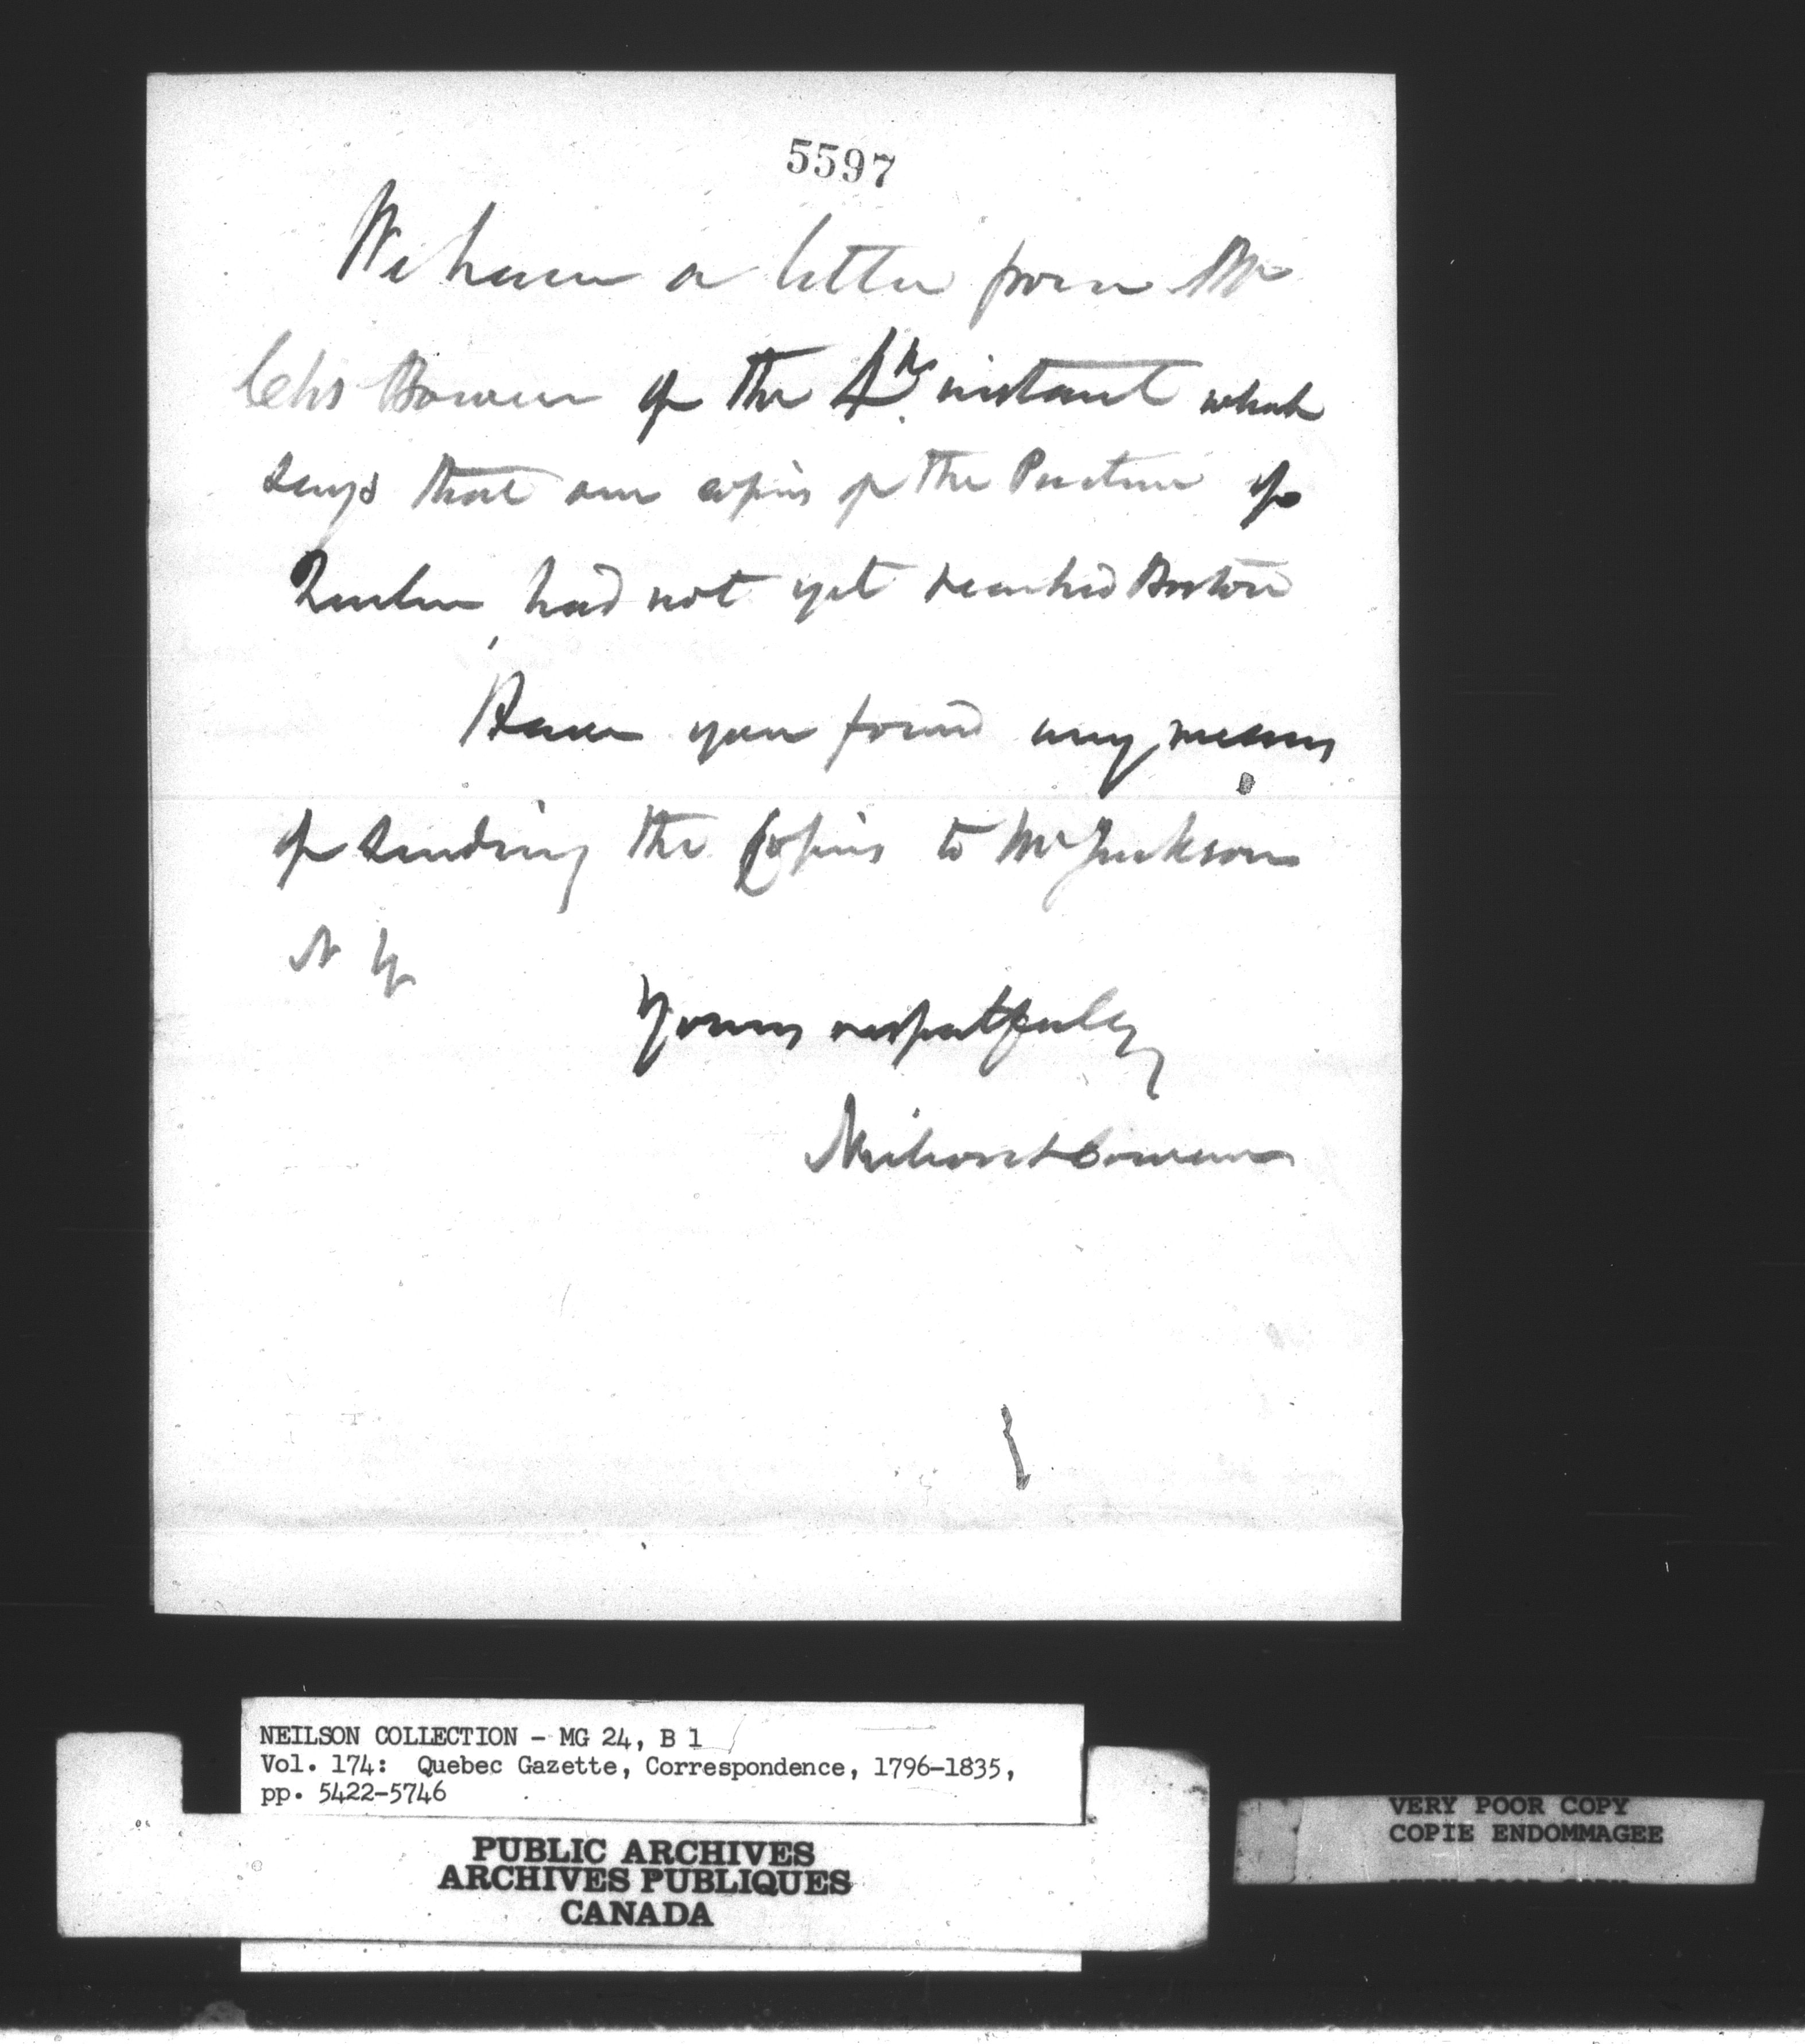 5597
We have a letter from Mr
Chs Bowen of the 4th instant which
says that our copies of the Picture of
Quebec had not yet reached Boston
Have you found any means
of sending the Copies to Mr Jackson
N Y
Yours respectfully
Neilson & Cowan
NEILSON COLLECTION - MG 24, B 1
Vol. 174: Quebec Gazette, Correspondence, 1796-1835,
pp. 5422-5746
PUBLIC ARCHIVES
ARCHIVES PUBLIQUES
CANADA
VERY POOR COPY
COPIE ENDOMMAGEE